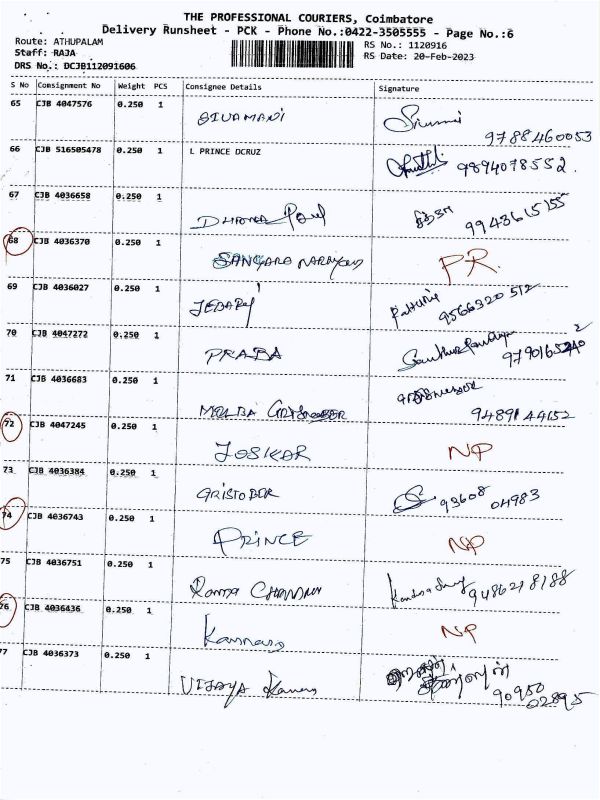 THE PROFESSIONAL COURIERS, Coimbatore
Delivery Runsheet - PCK - Phone No.:0422-3505555 - Page No.:6
Route: ATHUPALAM RS No.: 1120916
Staff: RAJA RS Date: 20-Feb-2023
DRS No.: DCJB112091606
S No Consignment No Weight PCS Consignee Details Signature
65 CJB 4047576 0.250 1
SIVAMANI 9788460053
66 CJB 516505478 0.250 1 L PRINCE DCRUZ
9894078552.
67 CJB 4036658 0.250 1
9943615155
68 CJB 4036370 0.250 1
PR.
69 CJB 4036027 0.250 1
9566320512
70 CJB 4047272 0.250 1
PRABA
71 CJB 4036683 0.250 1
72 CJB 4047245 0.250 1
JOSKAR NP
73 CJB 4036384 0.250 1
GRISTOBER 93608 04983
74 CJB 4036743 0.250 1
PRINCE NP
75 CJB 4036751 0.250 1
9486218188
76 CJB 4036436 0.250 1
NP
77 CJB 4036373 0.250 1
VIJAYA 90950
02895